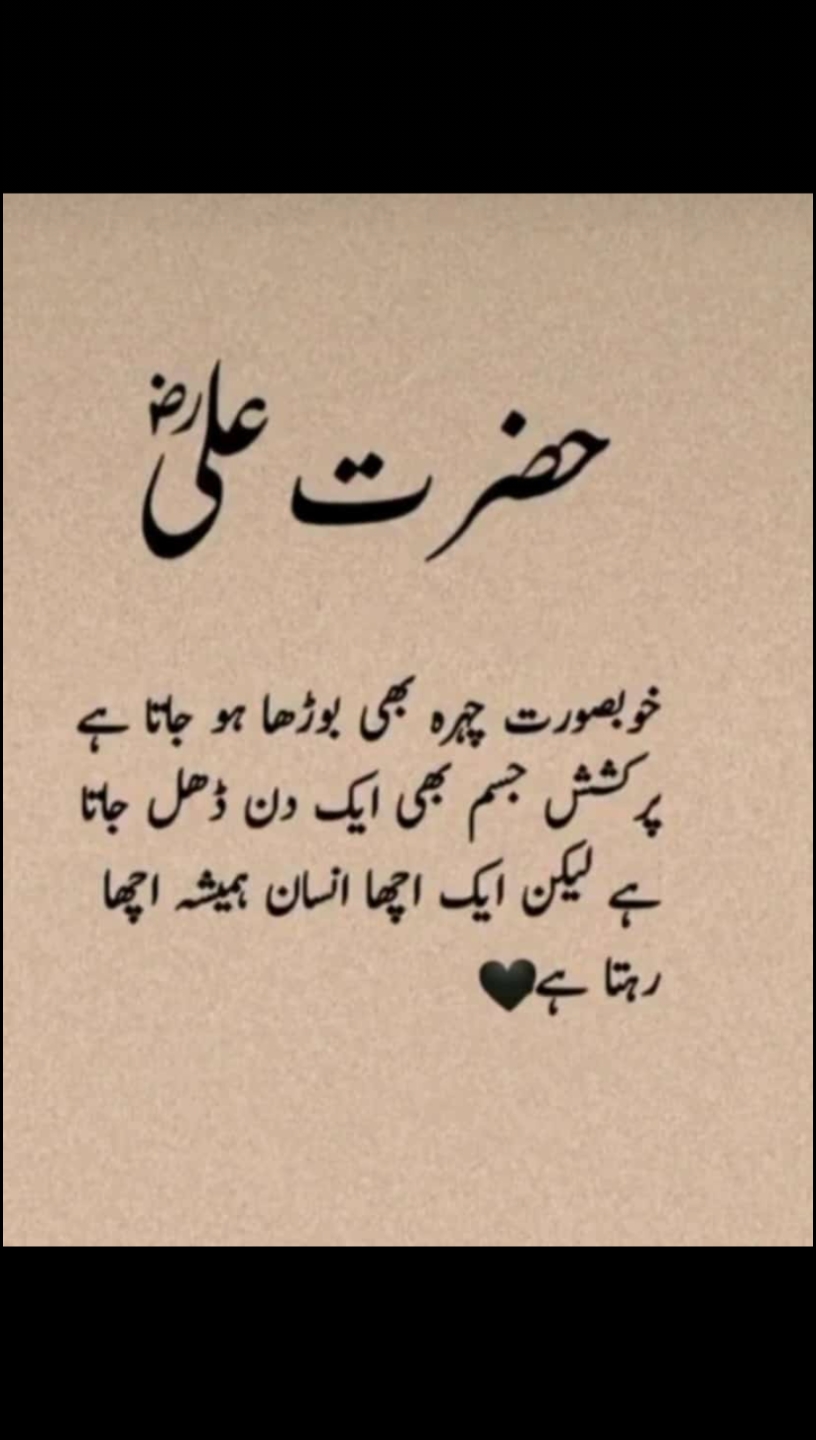 حضرت علیؓ
خوبصورت چہرہ بھی بوڑھا ہو جاتا ہے
پرکشش جسم بھی ایک دن ڈھل جاتا
ہے لیکن ایک اچھا انسان ہمیشہ اچھا
رہتا ہے🖤